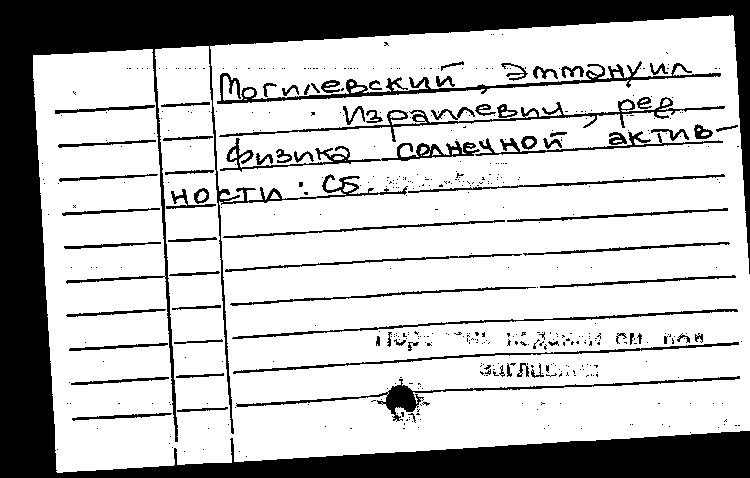 Могилевский, Эммануил
Израилевич, ред
Физика солнечной актив-
ности: Сб.
издания см. под
заглавием